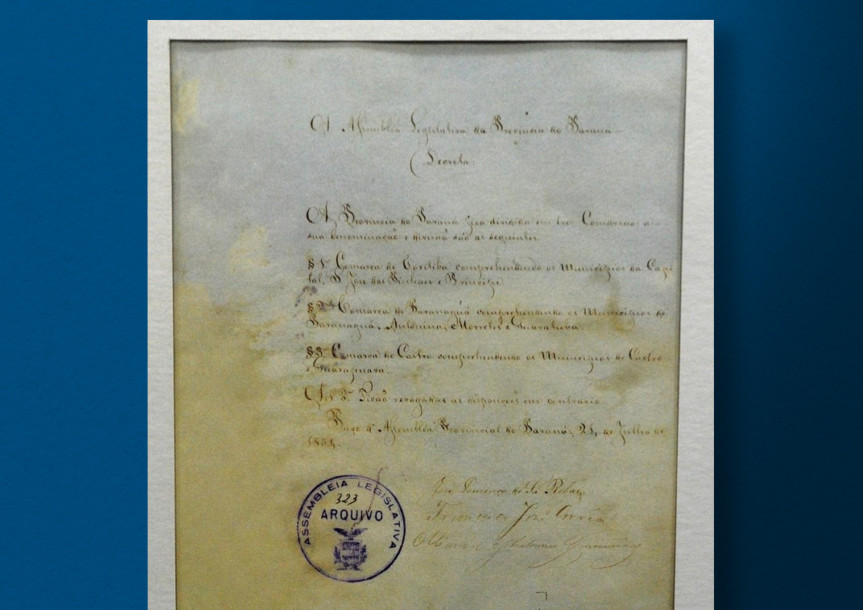 A Assembléa Legislativa da Provincia do Paraná
Decreta
A Provincia do Paraná fica dividida em tres Comarcas a
sua denominação e divisão são as seguintes
§ 1º Comarca de Coritiba comprehendendo os Municipios da Capi
tal, S José dos Pinhaes e Principe
§ 2º Comarca de Paranaguá comprehendendo os Municipios de
Paranaguá, Antonina, Morretes e Guaratuba
§ 3º Comarca de Castro comprehendendo os Municipios de Castro
e Guarapuava
Art 2º Ficão revogadas as disposições em contrario
Paço d' Assembléa Provincial do Paraná, 21, de Julho de
1854.
ASSEMBLEIA LEGISLATIVA
323
ARQUIVO
José Lourenço de Sá Ribas
Francisco José Corrêa